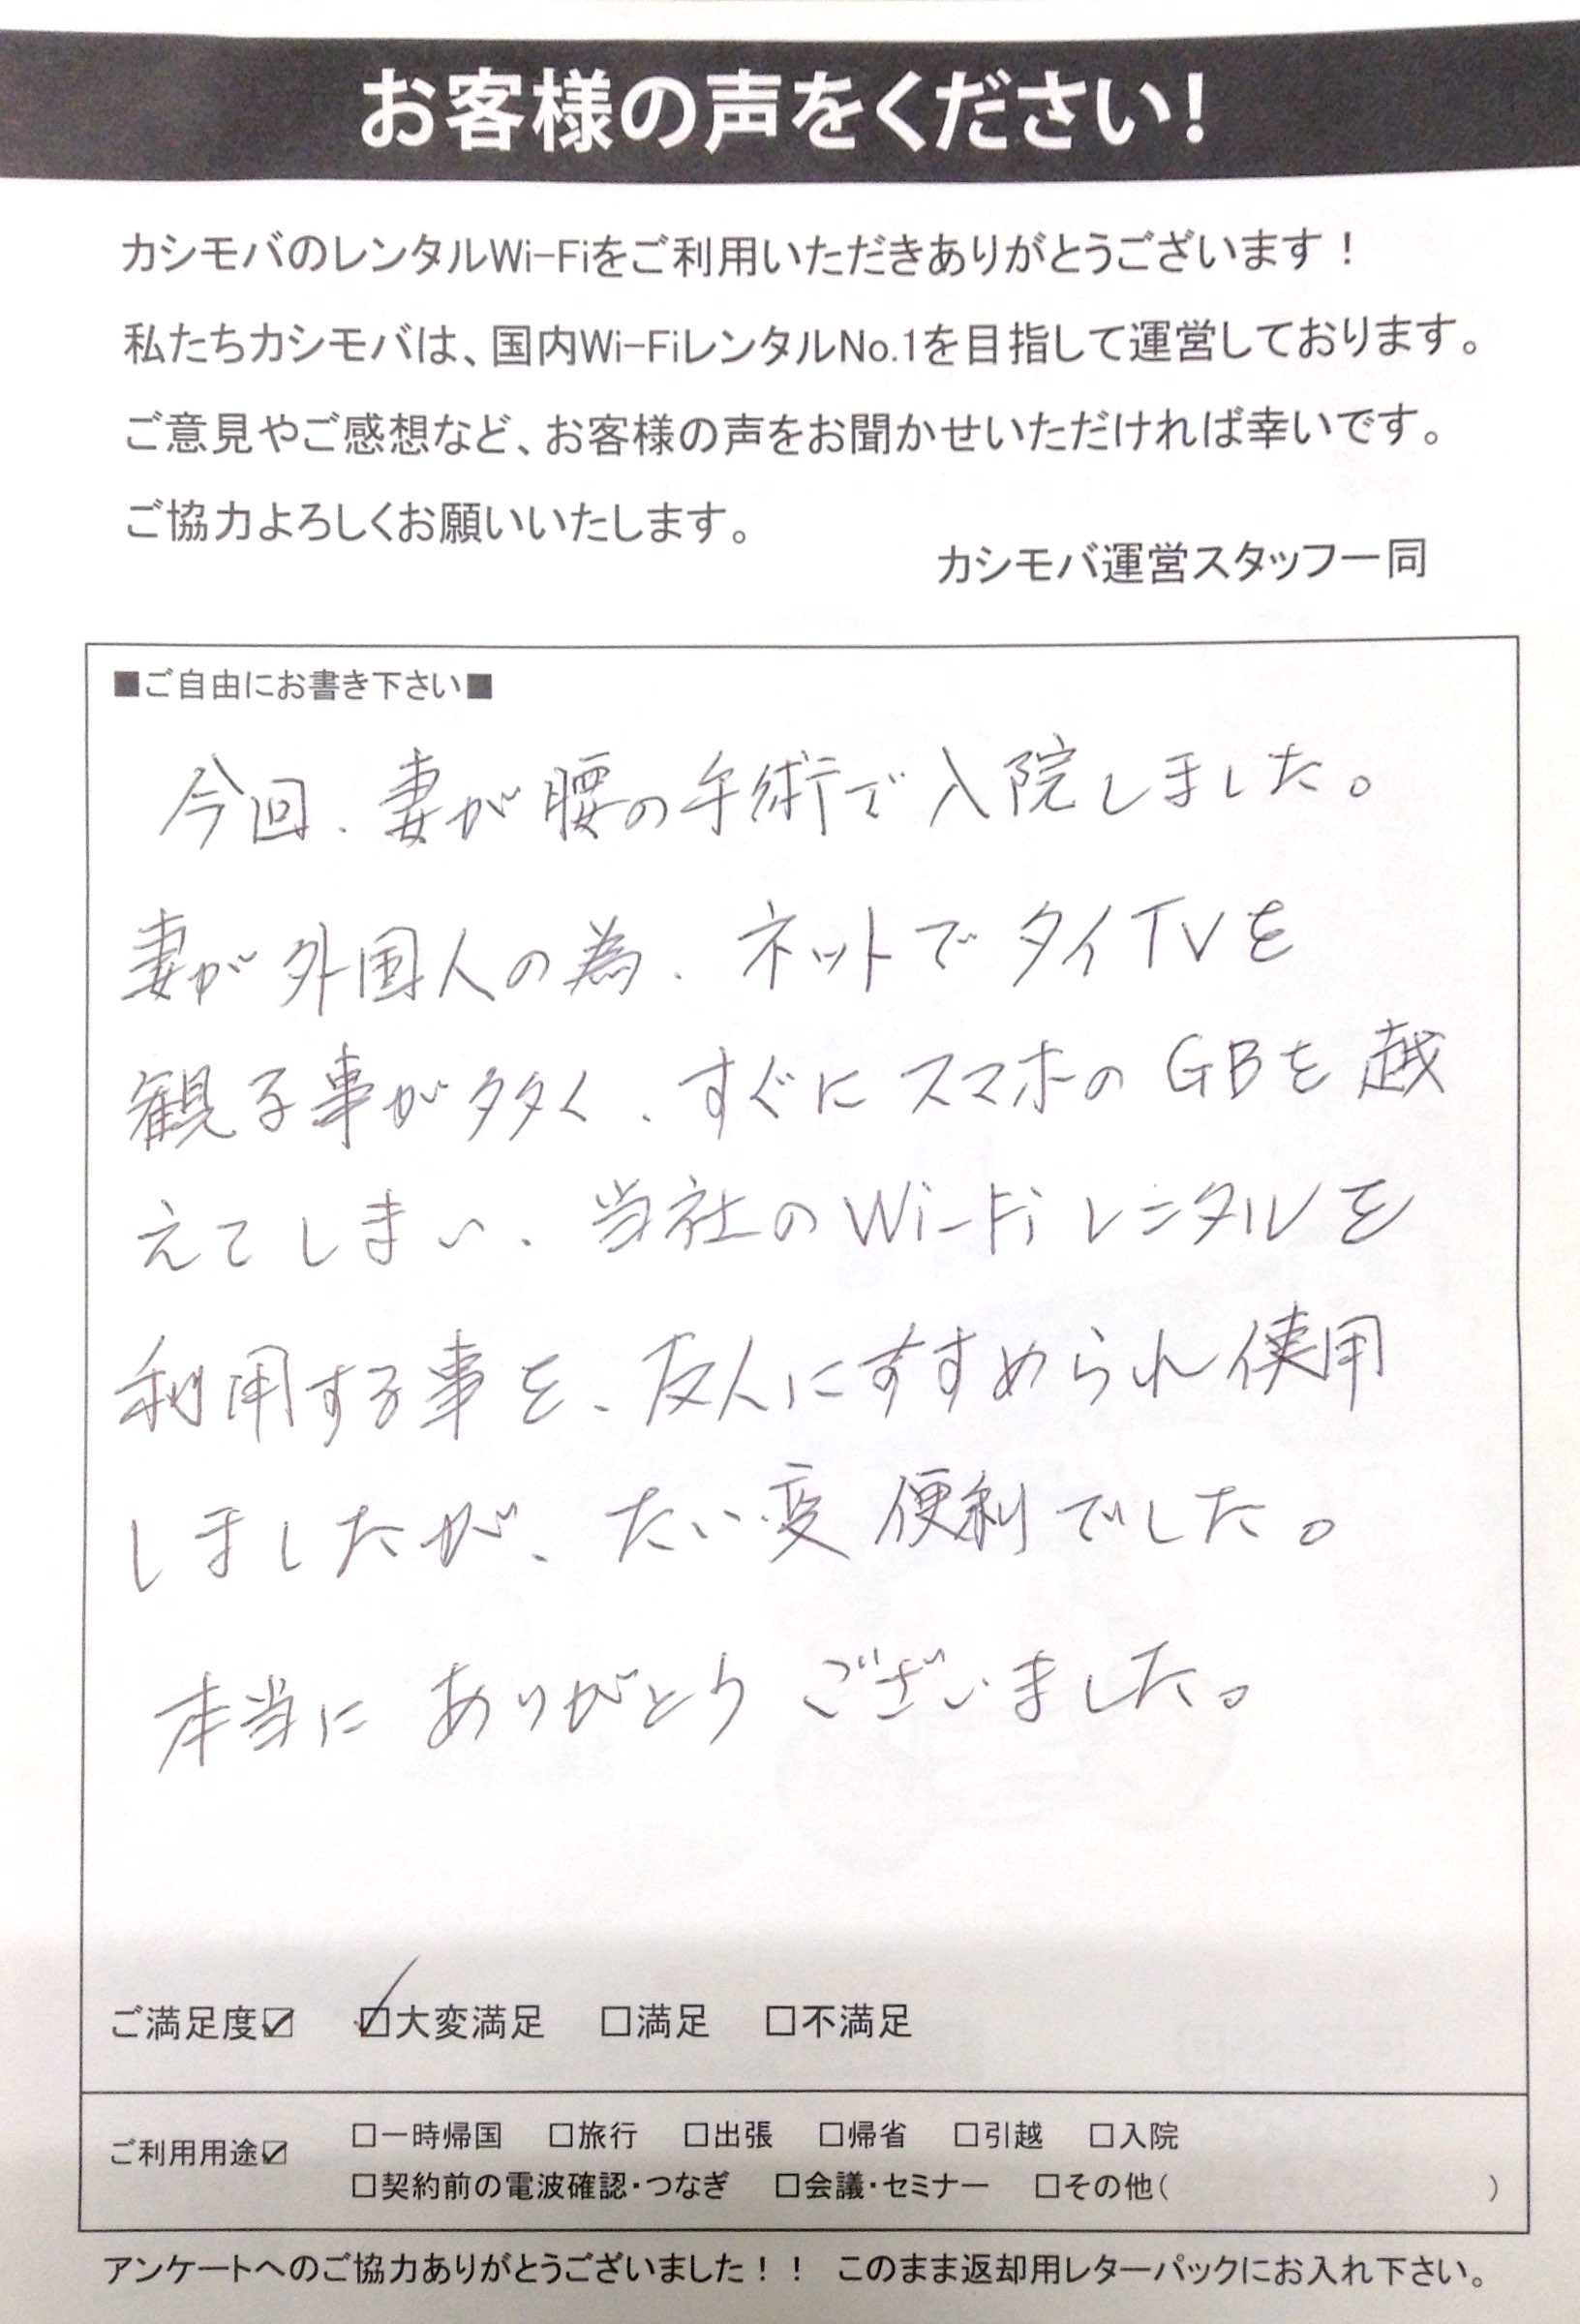 お客様の声をください!
カシモバのレンタルWi-Fiをご利用いただきありがとうございます！
私たちカシモバは、国内Wi-FiレンタルNo.1を目指して運営しております。
ご意見やご感想など、お客様の声をお聞かせいただければ幸いです。
ご協力よろしくお願いいたします。
カシモバ運営スタッフ一同
■ご自由にお書き下さい■
今回、妻が腰の手術で入院しました。
妻が外国人の為、ネットでタイTVを
観る事が多く、すぐにスマホのGBを越
えてしまい、当社のWi-Fiレンタルを
利用する事を、友人にすすめられ使用
しましたが、たい変便利でした。
本当にありがとうございました。
ご満足度☑ ☑大変満足 □満足 □不満足
ご利用用途☑ □一時帰国 □旅行 □出張 □帰省 □引越 □入院
□契約前の電波確認・つなぎ □会議・セミナー □その他( )
アンケートへのご協力ありがとうございました！！ このまま返却用レターパックにお入れ下さい。